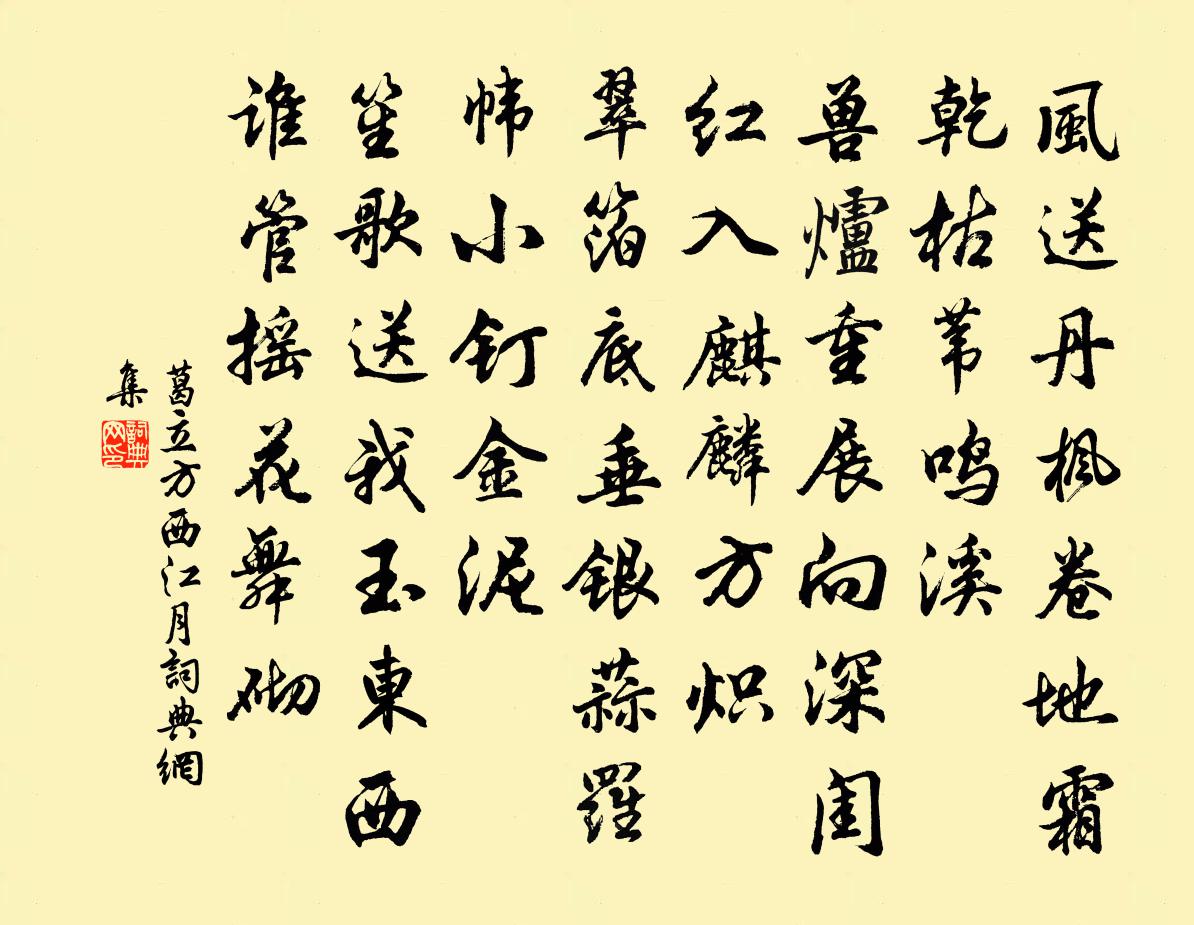 風送丹枫卷地霜
乾枯苇鸣溪
兽爐重展向深闺
红入麒麟方炽
翠箔底垂银蒜羅
帏小钉金泥
笙歌送我玉東西
谁管摇花舞砌
葛立方西江月詞典網
集
詞典
网印